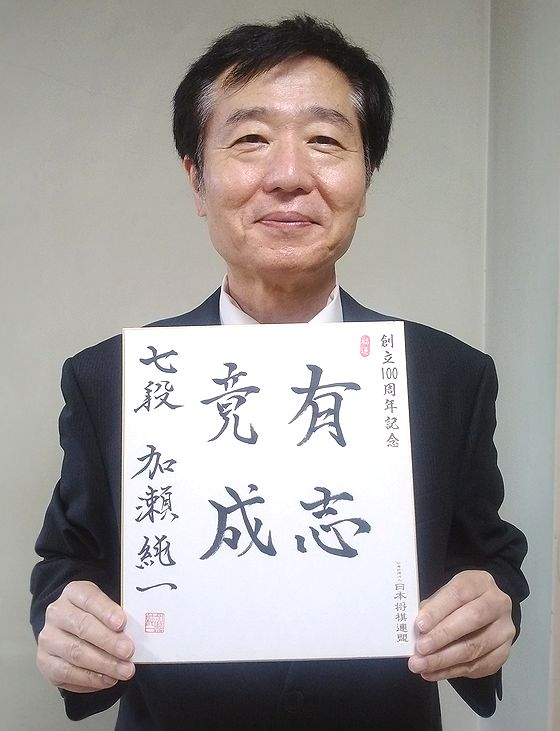 創立100周年記念
有志
竟成
七段 加瀬純一
日本将棋連盟